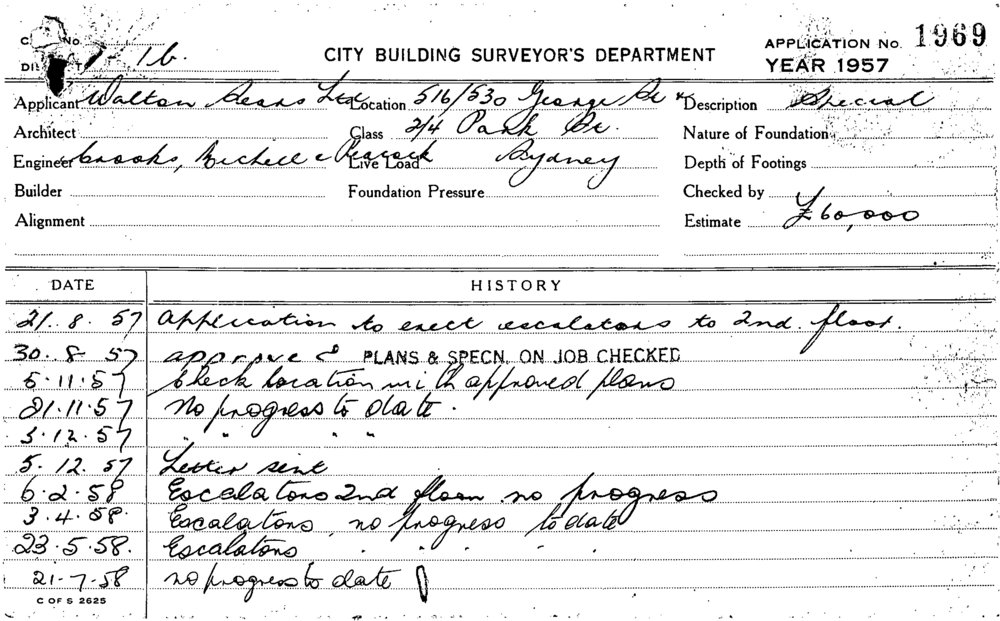 No.
CITY BUILDING SURVEYOR'S DEPARTMENT
APPLICATION No. 1969
YEAR 1957
16.
Applicant Walton Sears Ltd Location 516/530 George St & Description Special
Architect Class 2/4 Park St. Nature of Foundation
Engineer Crooks, Michell & Peacock Live Load Sydney Depth of Footings
Builder Foundation Pressure Checked by
Alignment Estimate £60,000
DATE HISTORY
21. 8. 57 Application to erect escalators to 2nd. floor.
30. 8 57 approved PLANS & SPECN. ON JOB CHECKED
5.11.57 Check location with approved plans
21.11.57 No progress to date.
3.12.57 " " " "
5.12.57 Letter sent
6.2.58 Escalators 2nd floor no progress
3.4.58. Escalators, no progress to date
23.5.58. Escalators " " " "
21-7-58 no progress to date
C OF S 2625